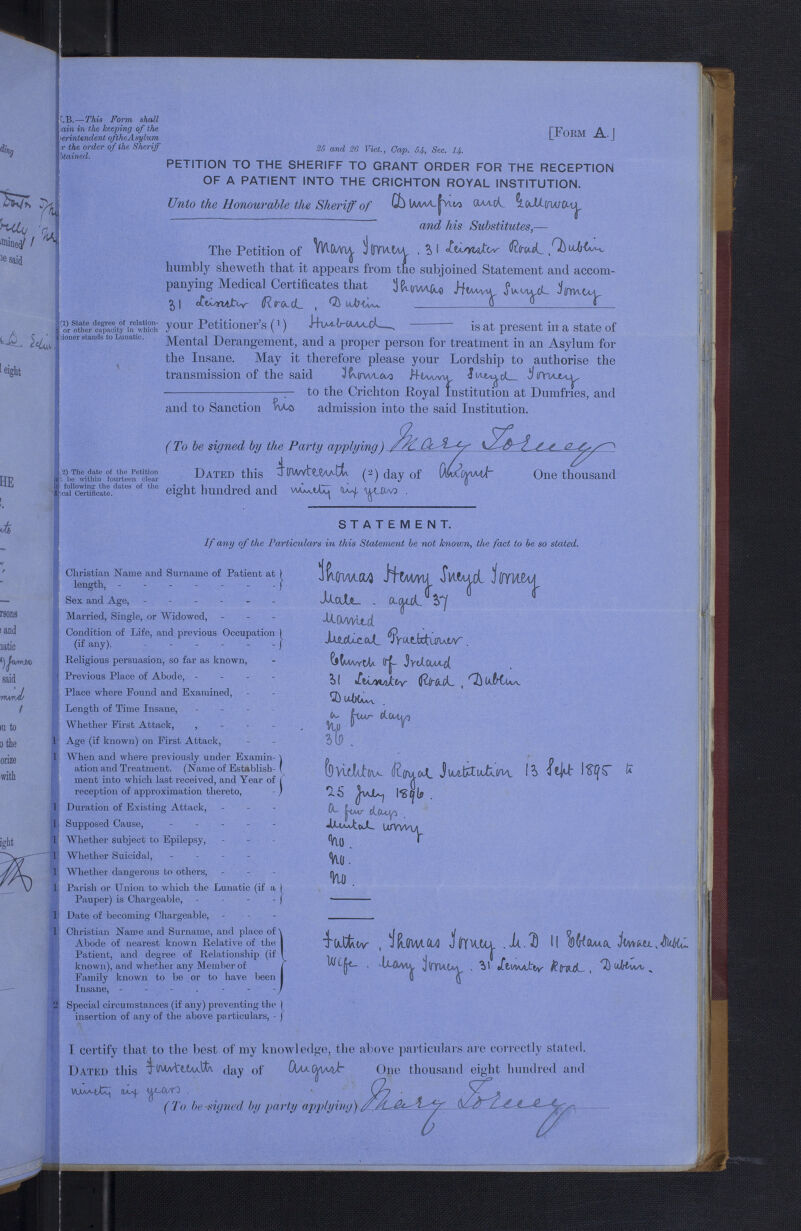 [Form A.]
.B.—This Form shall
ain in the keeping of the
erintendent of the Asylum
r the order of the Sheriff
btained.
25 and 26 Vict., Cap. 54, Sec. 14.
PETITION TO THE SHERIFF TO GRANT ORDER FOR THE RECEPTION
OF A PATIENT INTO THE CRICHTON ROYAL INSTITUTION.
Unto the Honourable the Sheriff of Dumfries and Galloway
and his Substitutes,—
The Petition of Mary Torney, 31 Leinster Road, Dublin
humbly sheweth that it appears from the subjoined Statement and accom-
panying Medical Certificates that Thomas Henry Sneyd Torney
31 Leinster Road, Dublin
(1) State degree of relation-
or other capacity in which
tioner stands to Lunatic.
your Petitioner's (1) Husband is at present in a state of
Mental Derangement, and a proper person for treatment in an Asylum for
the Insane. May it therefore please your Lordship to authorise the
transmission of the said Thomas Henry Sneyd Torney
to the Crichton Royal Institution at Dumfries, and
and to Sanction his admission into the said Institution.
(To be signed by the Party applying) Mary Torney
2) The date of the Petition
be within fourteen clear
following the dates of the
ical Certificate.
Dated this Fourteenth (2) day of August One thousand
eight hundred and ninety six years.
STATEMENT.
If any of the Particulars in this Statement be not known, the fact to be so stated.
Christian Name and Surname of Patient at length, - Thomas Henry Sneyd Torney
Sex and Age, - Male. aged 37
Married, Single, or Widowed, - Married
Condition of Life, and previous Occupation (if any). - Medical Practitioner.
Religious persuasion, so far as known, - Church of Ireland
Previous Place of Abode, - 31 Leinster Road, Dublin
Place where Found and Examined, - Dublin.
Length of Time Insane, - a few days
Whether First Attack, - no
1 Age (if known) on First Attack, - 36.
1 When and where previously under Examin-
ation and Treatment, (Name of Establish-
ment into which last received, and Year of
reception of approximation thereto,
Crichton Royal Institution 13 Sept 1895 to
25 July 1896.
1 Duration of Existing Attack, - a few days.
1 Supposed Cause, - Mental worry
1 Whether subject to Epilepsy, - no.
1 Whether Suicidal, - no.
1 Whether dangerous to others, - no.
1 Parish or Union to which the Lunatic (if a
Pauper) is Chargeable, -
1 Date of becoming Chargeable, -
1 Christian Name and Surname, and place of
Abode of nearest known Relative of the
Patient, and degree of Relationship (if
known), and whether any Member of
Family known to be or to have been
Insane, -
Father, Thomas Torney. M.D 11 Eblana Terrace, Dublin
Wife. Mary Torney. 31 Leinster Road, Dublin.
2 Special circumstances (if any) preventing the
insertion of any of the above particulars, -
I certify that to the best of my knowledge, the above particulars are correctly stated.
Dated this Fourteenth day of August One thousand eight hundred and
ninety six years.
(To be signed by party applying) Mary Torney